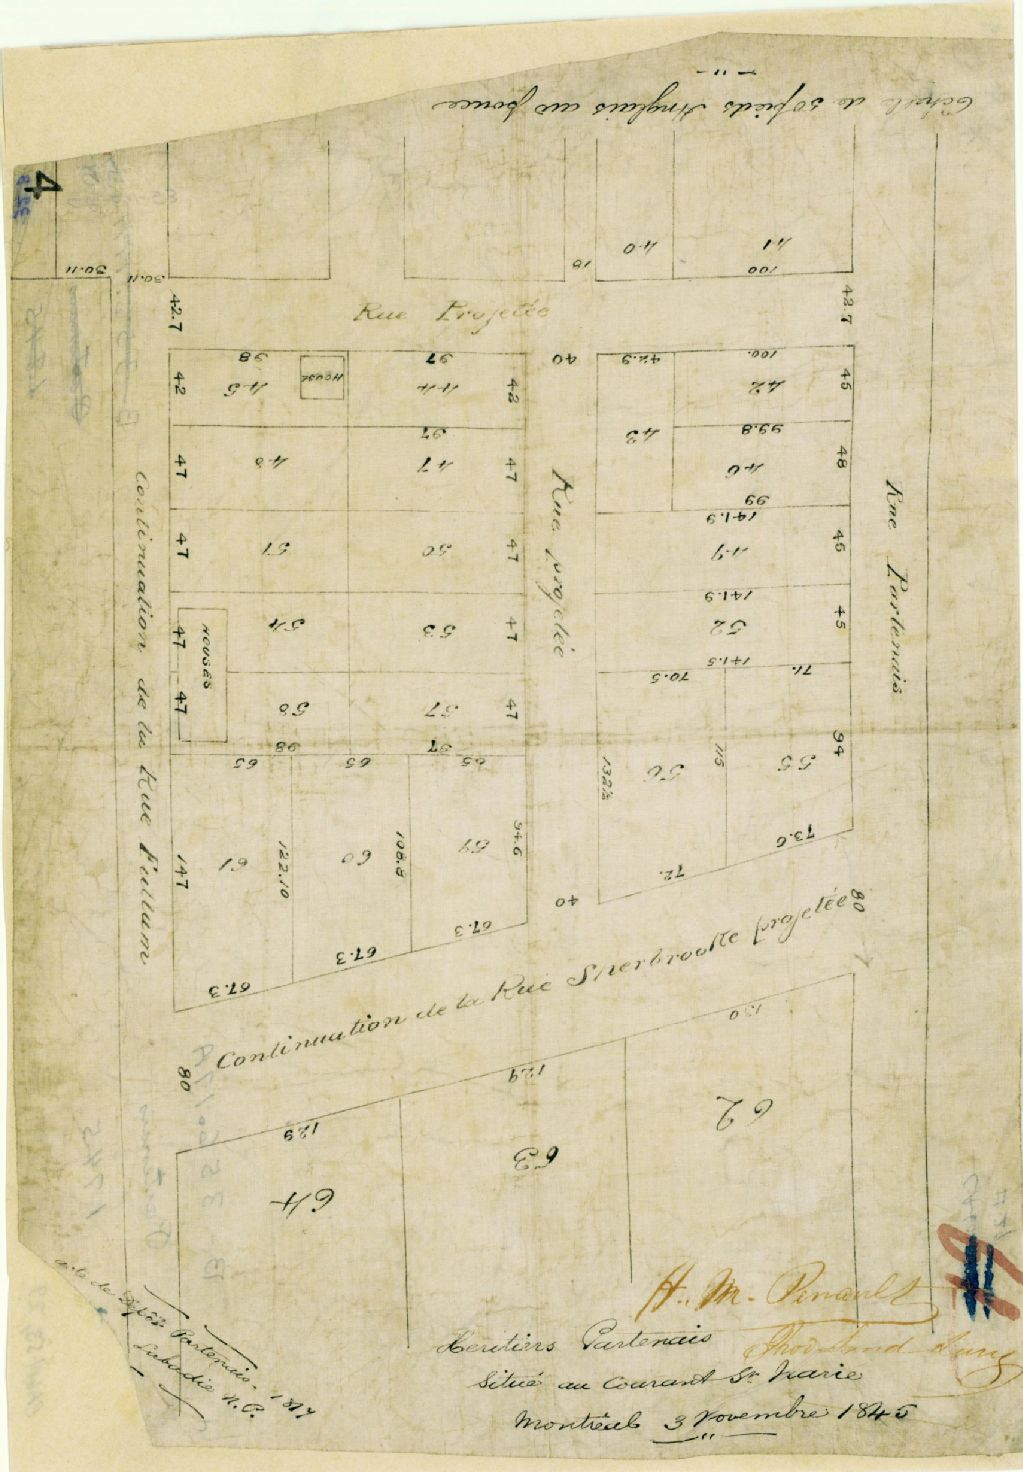 Echele de 50 pieds Anglais au pouce
4
41
40
100
18
30.11
30.11
42.7
Rue Projetée
42.7
98
97
40
42.9
100.
42
45
HOUSE
44
42
42
45
97
43
99.8
47
48
47
47
46
48
99
141.9
47
51
50
47
Rue projetée
49
46
Rue Partenais
141.9
47
HOUSES
54
53
47
52
45
141.5
70.5
71.
47
58
57
47
98
97
65
65
65
132½
56
115
55
94
continuation de la Rue Fullum
147
61
122.10
60
108.8
59
94.6
73.6
72.
40
67.3
67.3
67.3
80
Continuation de la Rue Sherbrooke projetée
80
130
129
129
62
63
64
H. M. Perrault
Heritiers Partenais
Situé au Courant St Marie
Montréal 3 Novembre 1845
Partenais
Labadie N.P.